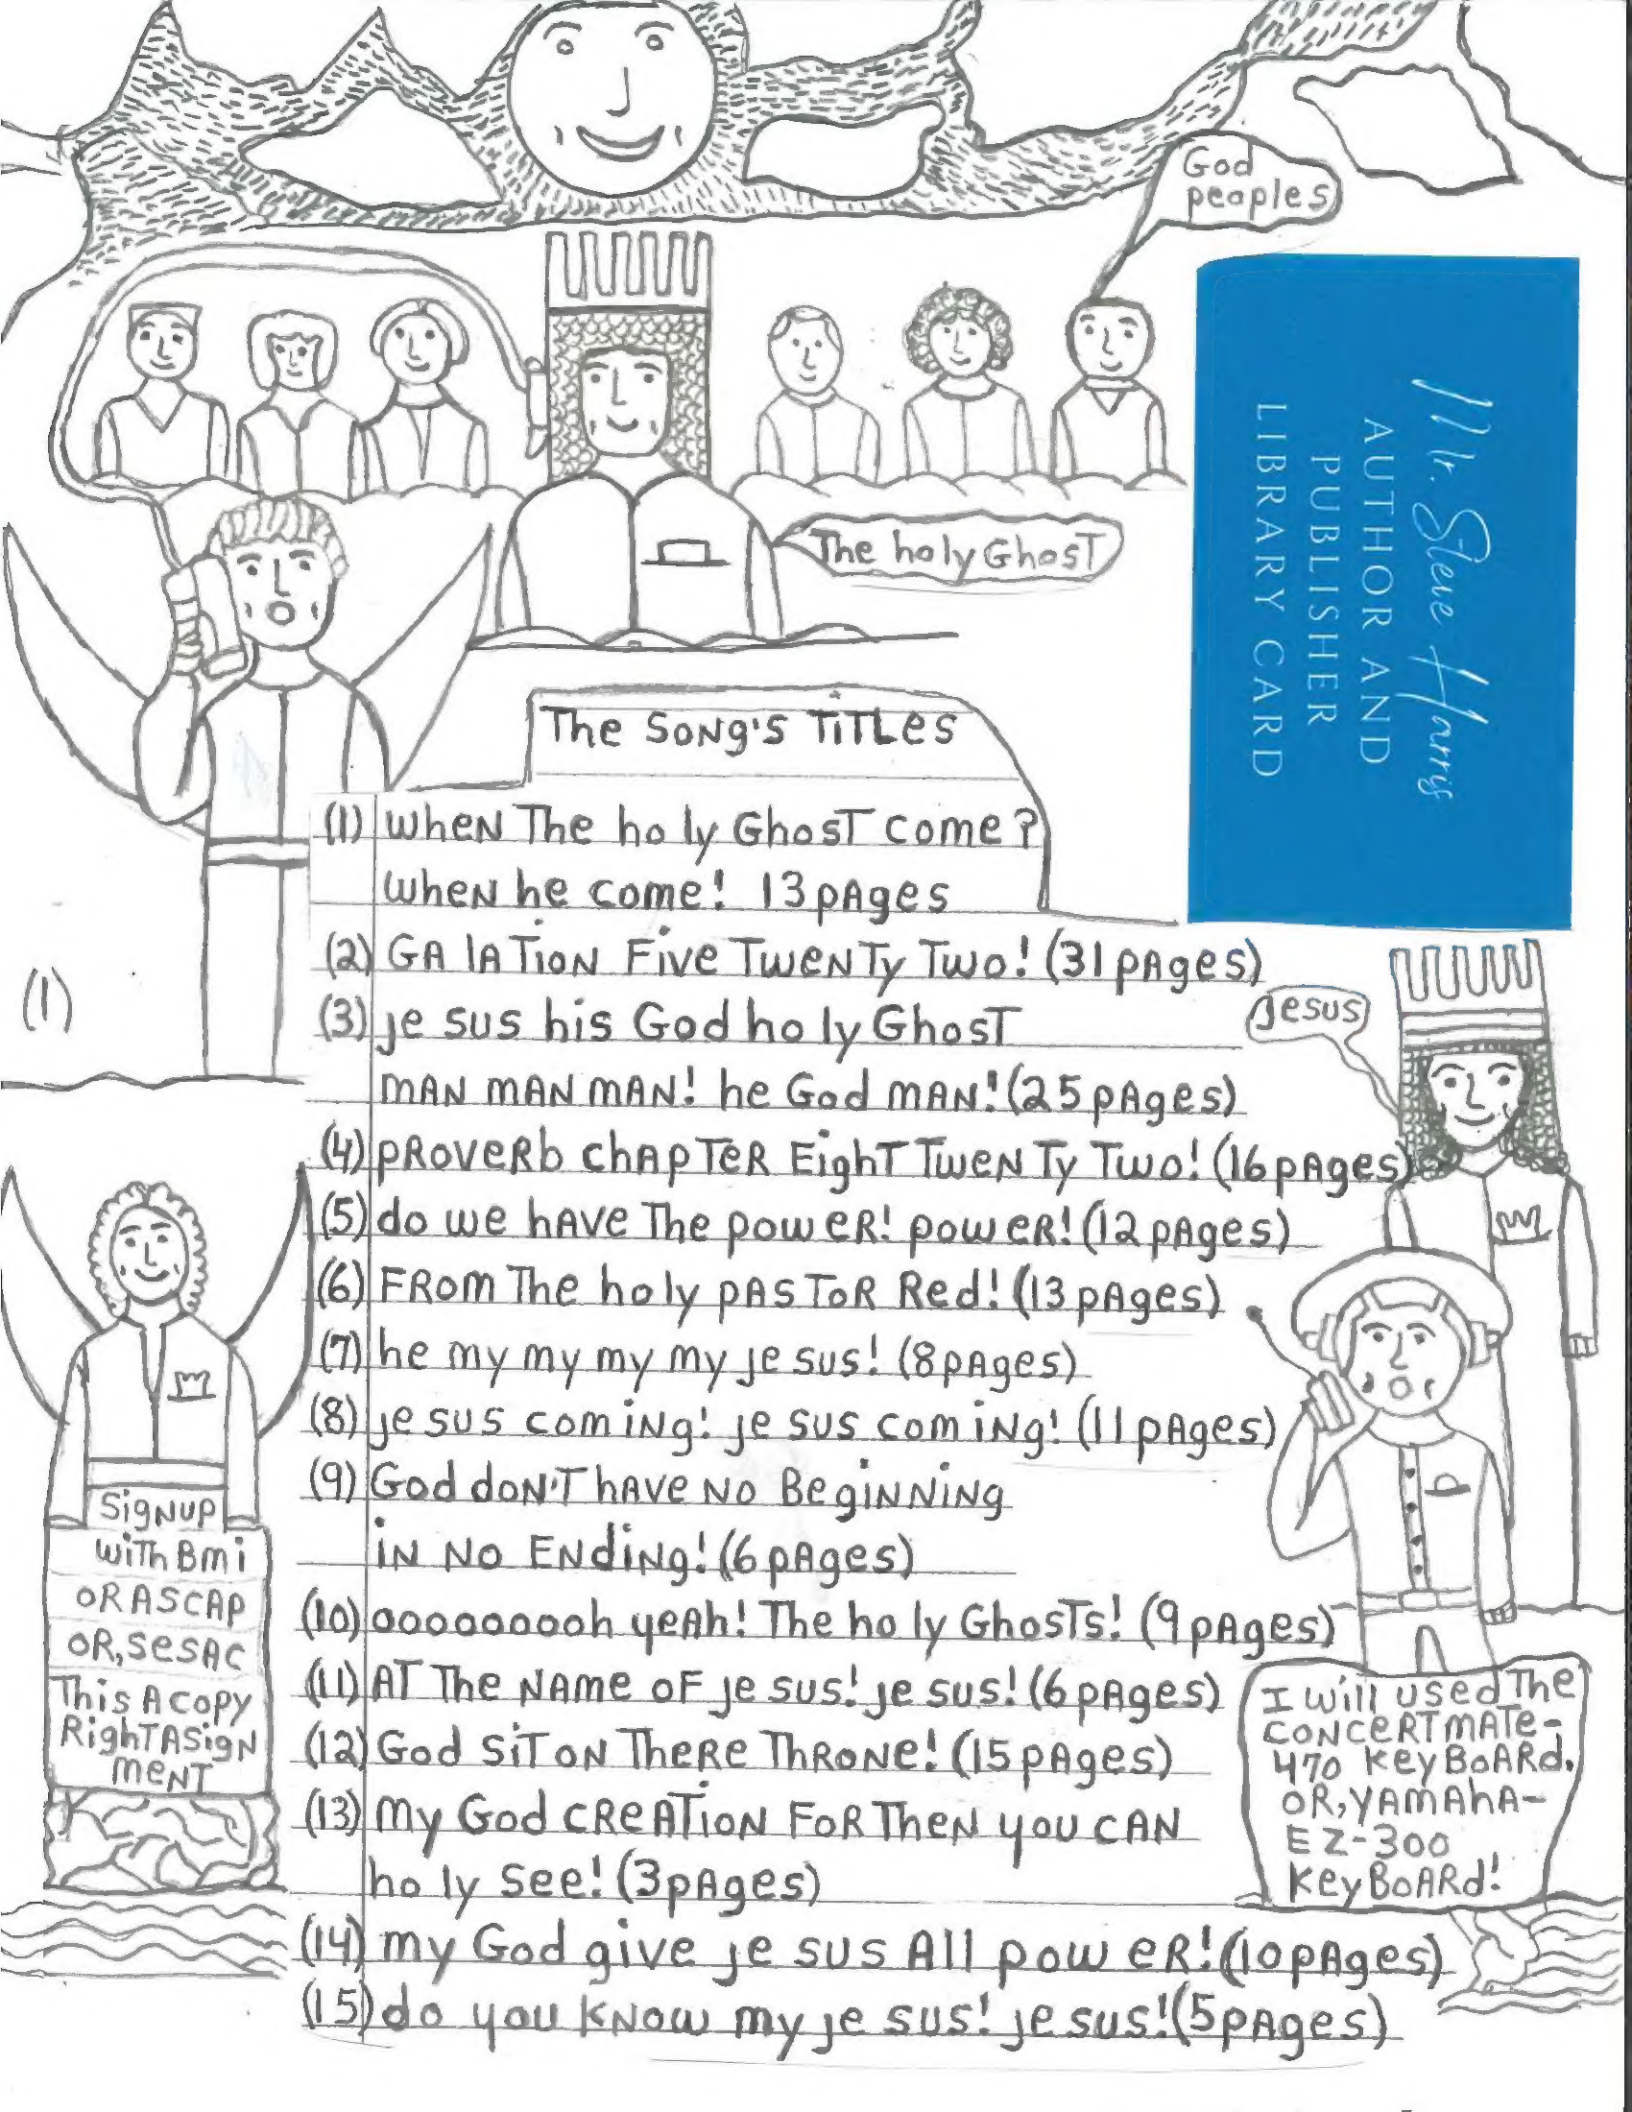 God
peoples
Mr. Steve Harris
AUTHOR AND
PUBLISHER
LIBRARY CARD
The holy Ghost
The Song's Titles
(1) When The holy Ghost come?
When he come! 13 pages
(2) Galation Five Twenty Two! (31 pages)
(3) jesus his God holy Ghost
man man man! he God man! (25 pages)
(4) proverb chapter Eight Twenty Two! (16 pages)
(5) do we have The power! power! (12 pages)
(6) From The holy pastor Red! (13 pages)
(7) he my my my my jesus! (8 pages)
(8) jesus coming! jesus coming! (11 pages)
(9) God don't have no Beginning
in no Ending! (6 pages)
(10) ooooooooh yeah! The holy Ghosts! (9 pages)
(11) At The name of jesus! jesus! (6 pages)
(12) God sit on There Throne! (15 pages)
(13) my God creation For Then you can
holy see! (3 pages)
(14) my God give jesus All power! (10 pages)
(15) do you know my jesus! jesus! (5 pages)
(1)
jesus
Signup
with Bmi
or ASCAP
or, sesac
This A copy
Right Asign
ment
I will used The
concertmate-
470 keyboard.
or, yamaha-
EZ-300
keyboard!